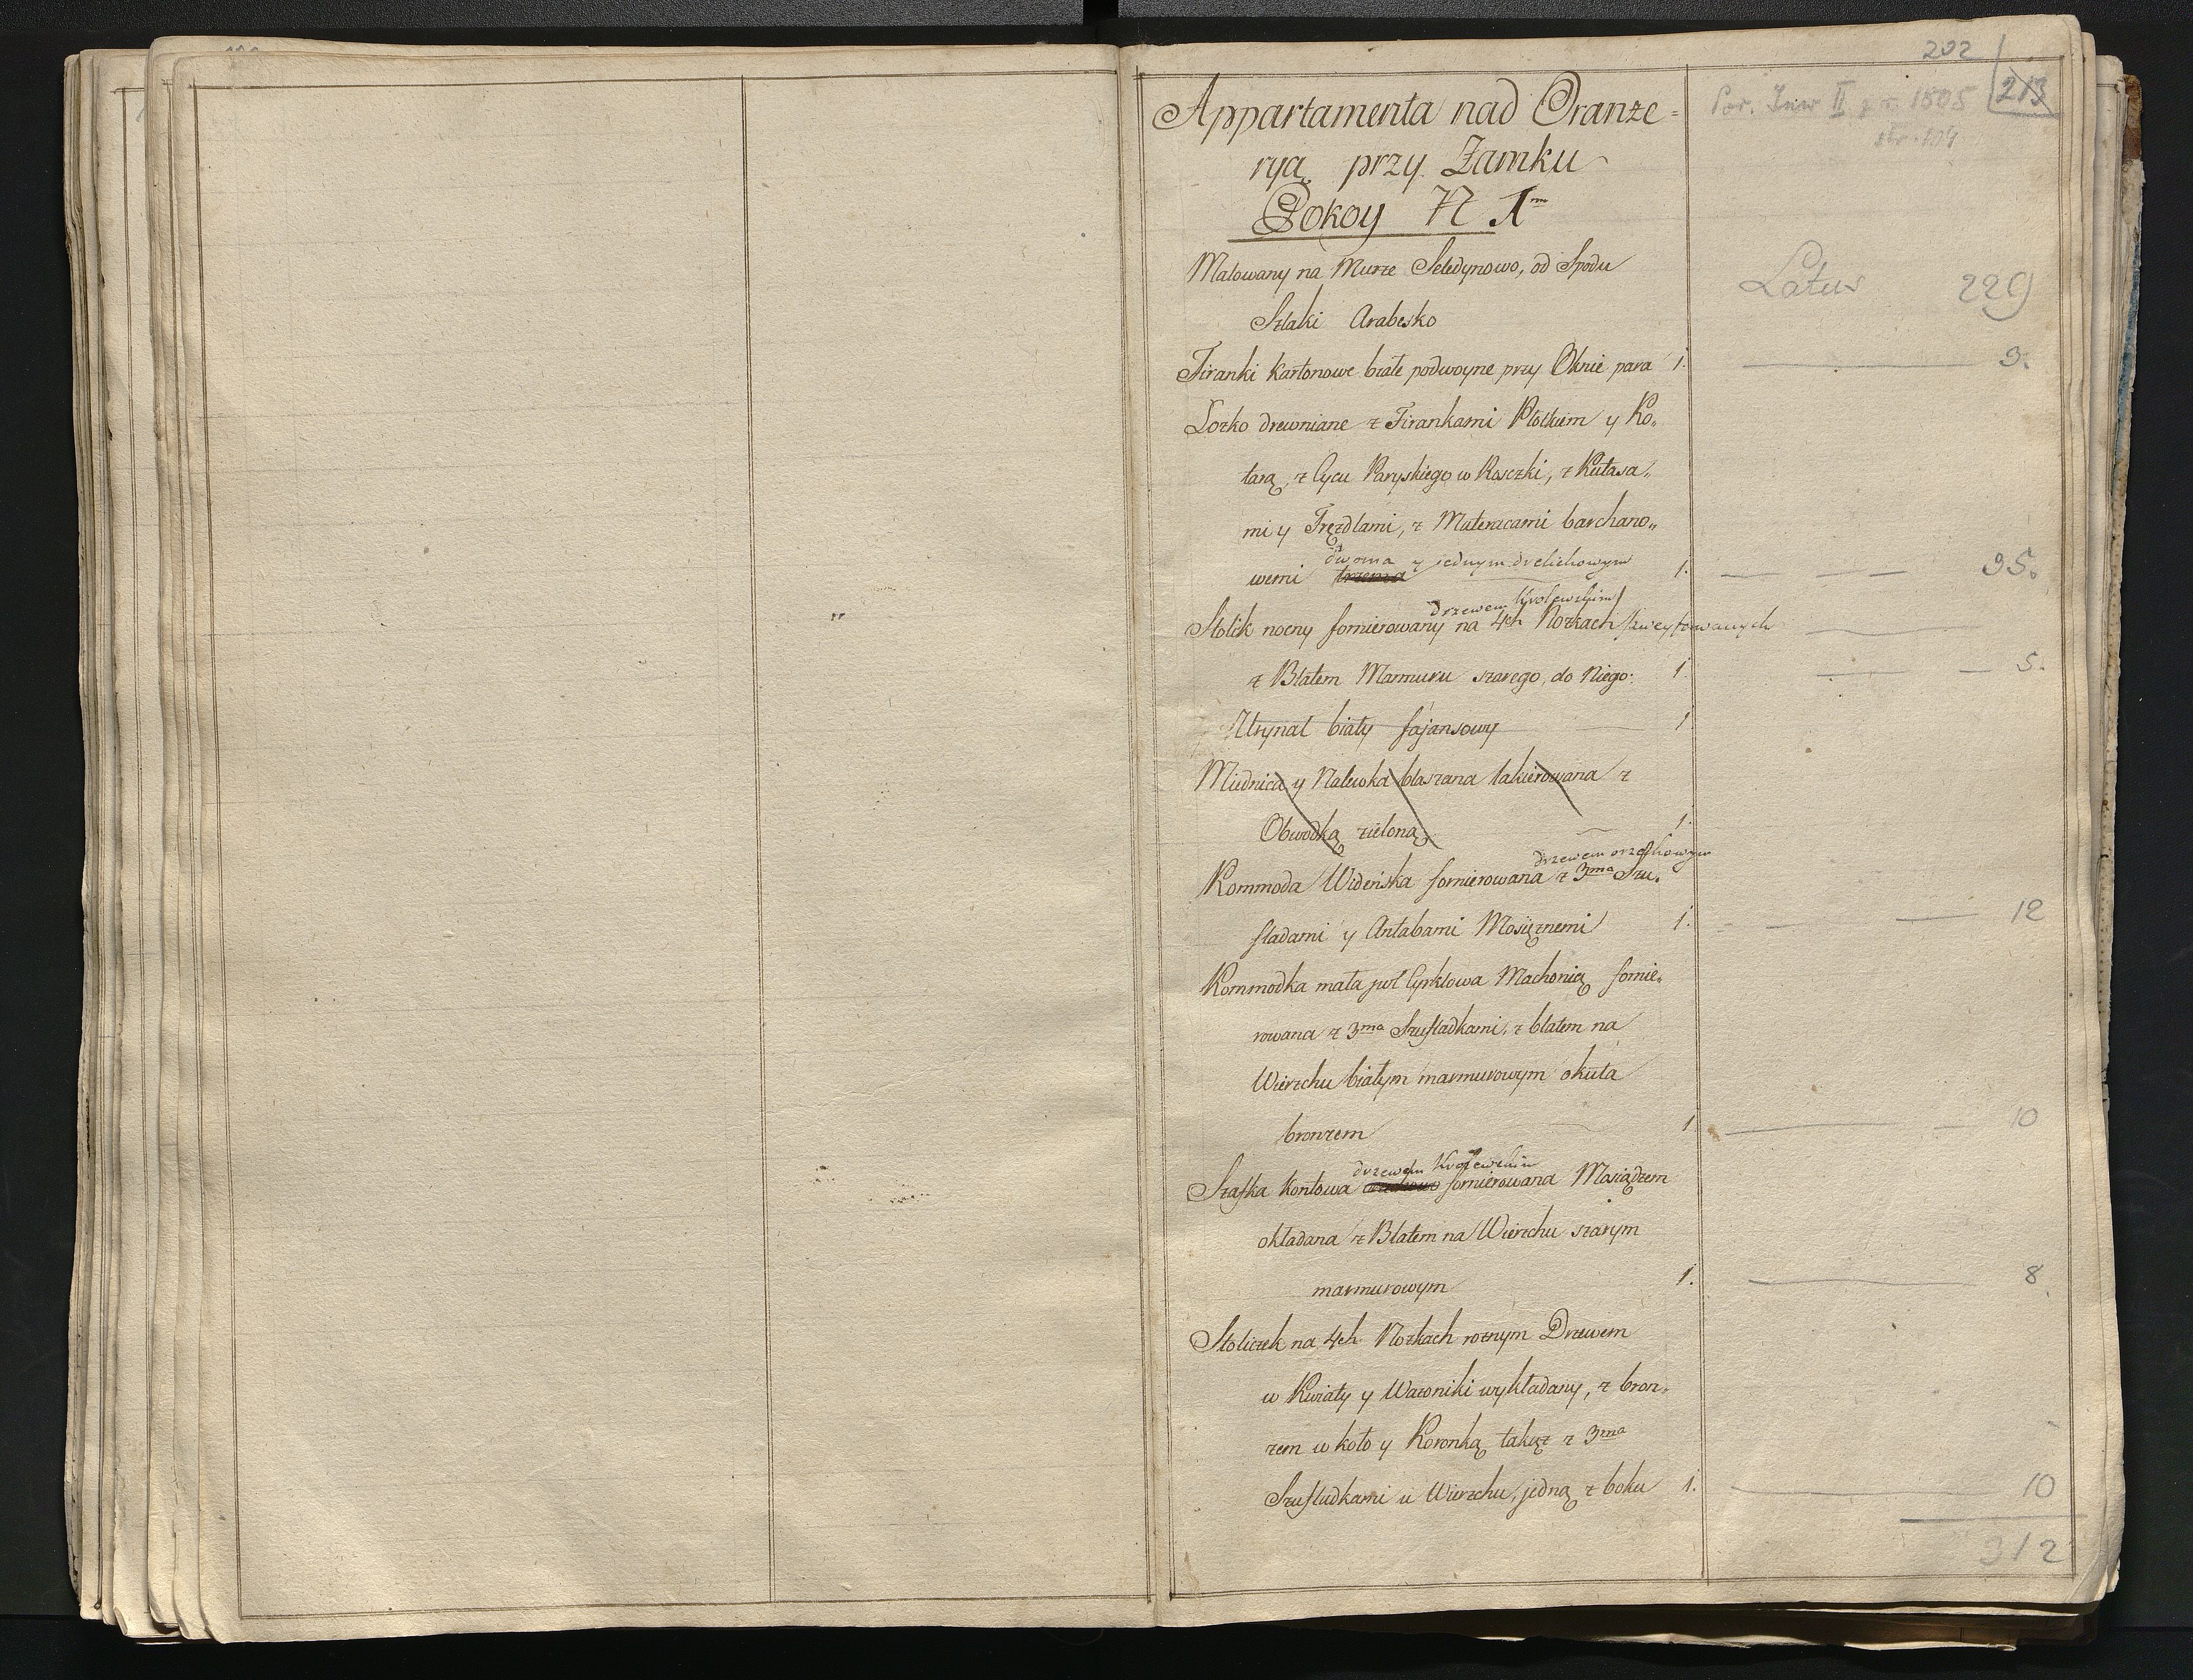 202
213
Por. Inw II z r. 1805
str. 104
Appartamenta nad Oranze=
ryą przy Zamku
Pokoy N 1m
Malowany na Murze Seledynowo, od Spodu
Szlaki Arabesko
Latus 229
Firanki Kartonowe białe podwoyne przy Oknie para 1. 3.
Łozko drewniane z Firankami Płotkiem y Ko„
tarą, z Cycu Paryskiego w Rosczki, z Kutasa„
mi y Frędzlami, z Materacami barchano„
dwoma y jednym drelichowym
wemi trzema 1. 35.
drzewem Krolewskim
Stolik nocny fornierowany na 4ch Nozkach
z Blatem Marmuru szarego, do Niego 1. 5.
Urynał biały fajansowy 1
Miednica y Nalewka blaszana lakierowana z
Obwodką zieloną 1.
drzewem orzechowym
Kommoda Wideńska fornierowana z 3ma Szu„
fladami y Antabami Mosięznemi 1. 12
Kommodka mała puł Cyrklowa Machonią fornie„
rowana z 3ma Szufladkami, z blatem na
Wierzchu białym marmurowym okuta
bronzem 1 10
drzewem Krolewskim
Szafka Kontowa fornierowana Mosiądzem
okładana z Blatem na Wierzchu szarym
marmurowym 1. 8
Stoliczek na 4ch Nozkach roznym Drzewem
w Kwiaty y Wazoniki wykładany, z bron„
zem w koło y Koronką takąz z 3ma
Szufladkami u Wierzchu, jedną z boku 1. 10
312